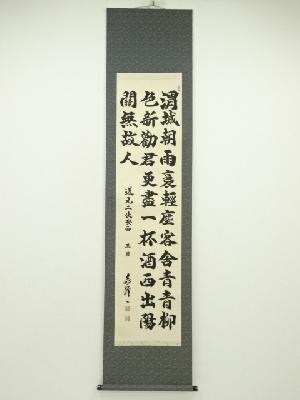 渭城朝雨裛輕塵客舍青青柳
色新勸君更盡一杯酒西出陽
關無故人
送元二使安西 王維